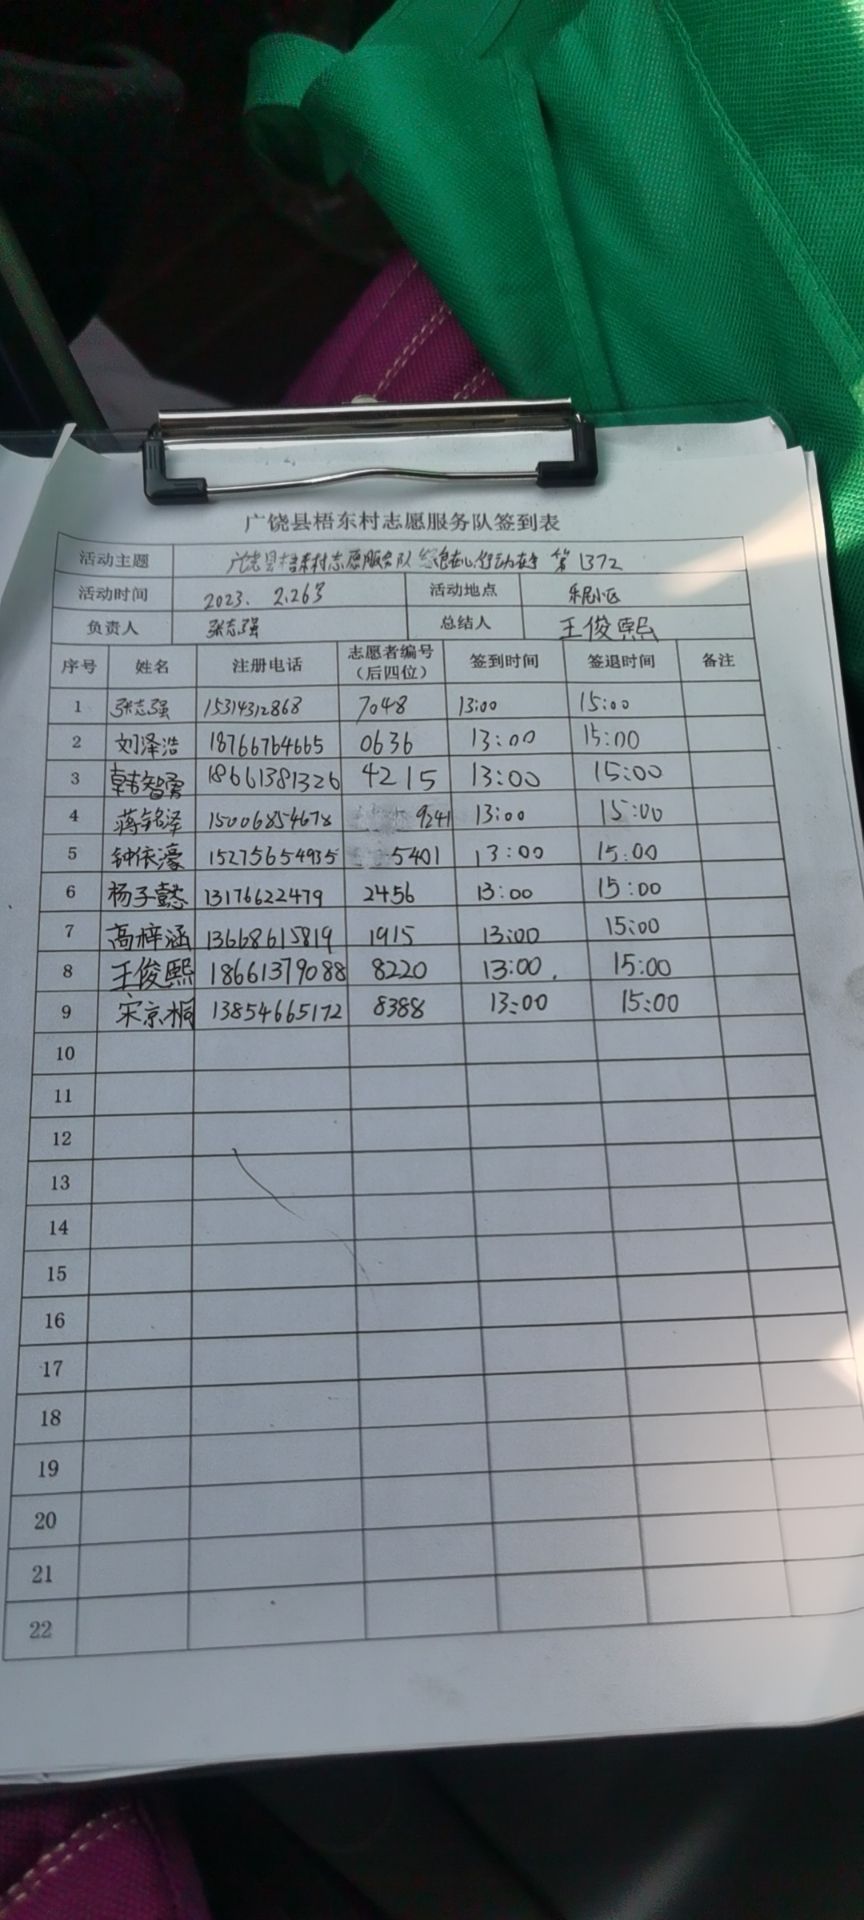 广饶县梧东村志愿服务队签到表
活动主题 广饶县梧东村志愿服务队 绿色在心 行动在手 第1372
活动时间 2023. 2.26号 活动地点 乐民小区
负责人 张志强 总结人 王俊熙
序号 姓名 注册电话 志愿者编号（后四位） 签到时间 签退时间 备注
1 张志强 15314312868 7048 13:00 15:00
2 刘泽浩 18766764665 0636 13:00 15:00
3 韩智勇 18661381326 4215 13:00 15:00
4 蒋铭泽 15006854678 9241 13:00 15:00
5 钟依濠 15275654935 5401 13:00 15:00
6 杨子懿 13176622479 2456 13:00 15:00
7 高梓涵 13668615819 1915 13:00 15:00
8 王俊熙 18661379088 8220 13:00. 15:00
9 宋京桐 13854665172 8388 13:00 15:00
10
11
12
13
14
15
16
17
18
19
20
21
22